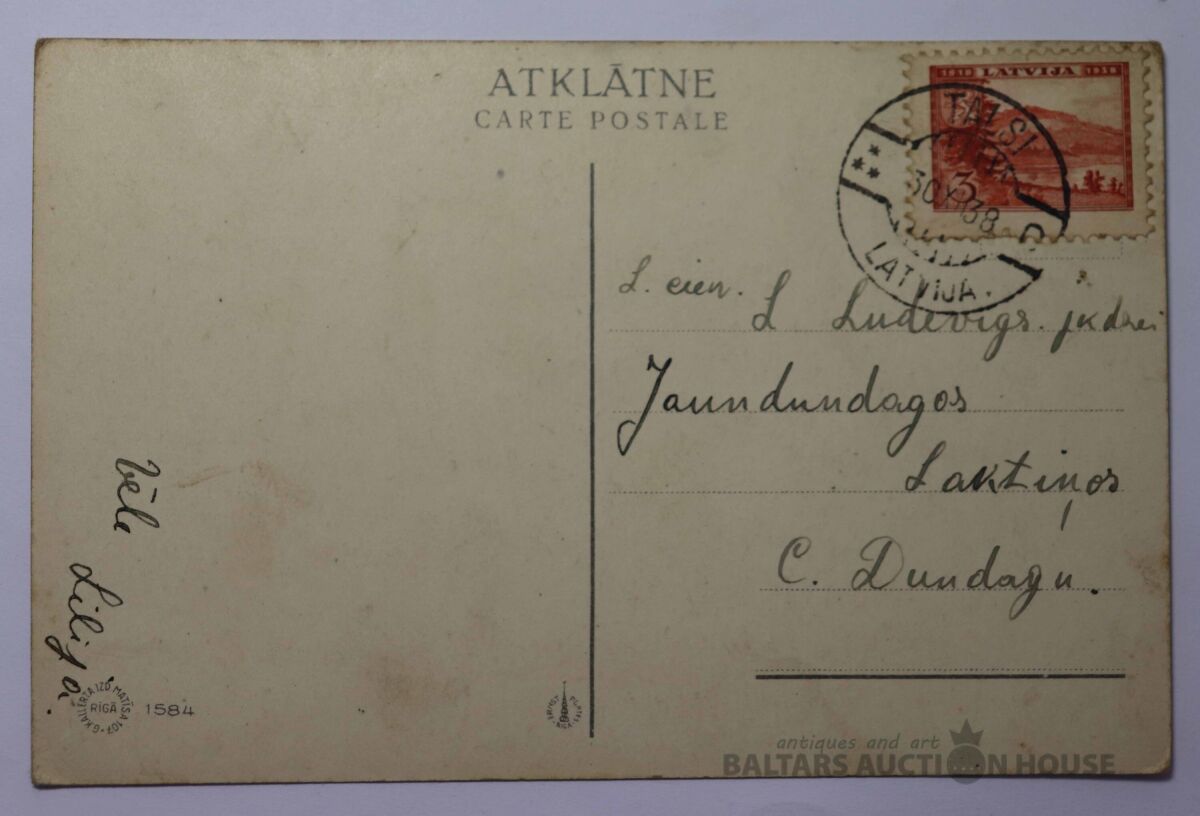 ATKLĀTNE
CARTE POSTALE
1918 LATVIJA 1938
3
TALSI
30 XII 38
C
LATVIJA
L. cien.
L Ludevigs. jkdzei
Jaundundagos
Laktiņos
C. Dundagu.
Vēl
Lilija.
G. KAILERTA IZD. MATĪSA 107
RĪGĀ
1584
antiques and art
BALTARS AUCTION HOUSE